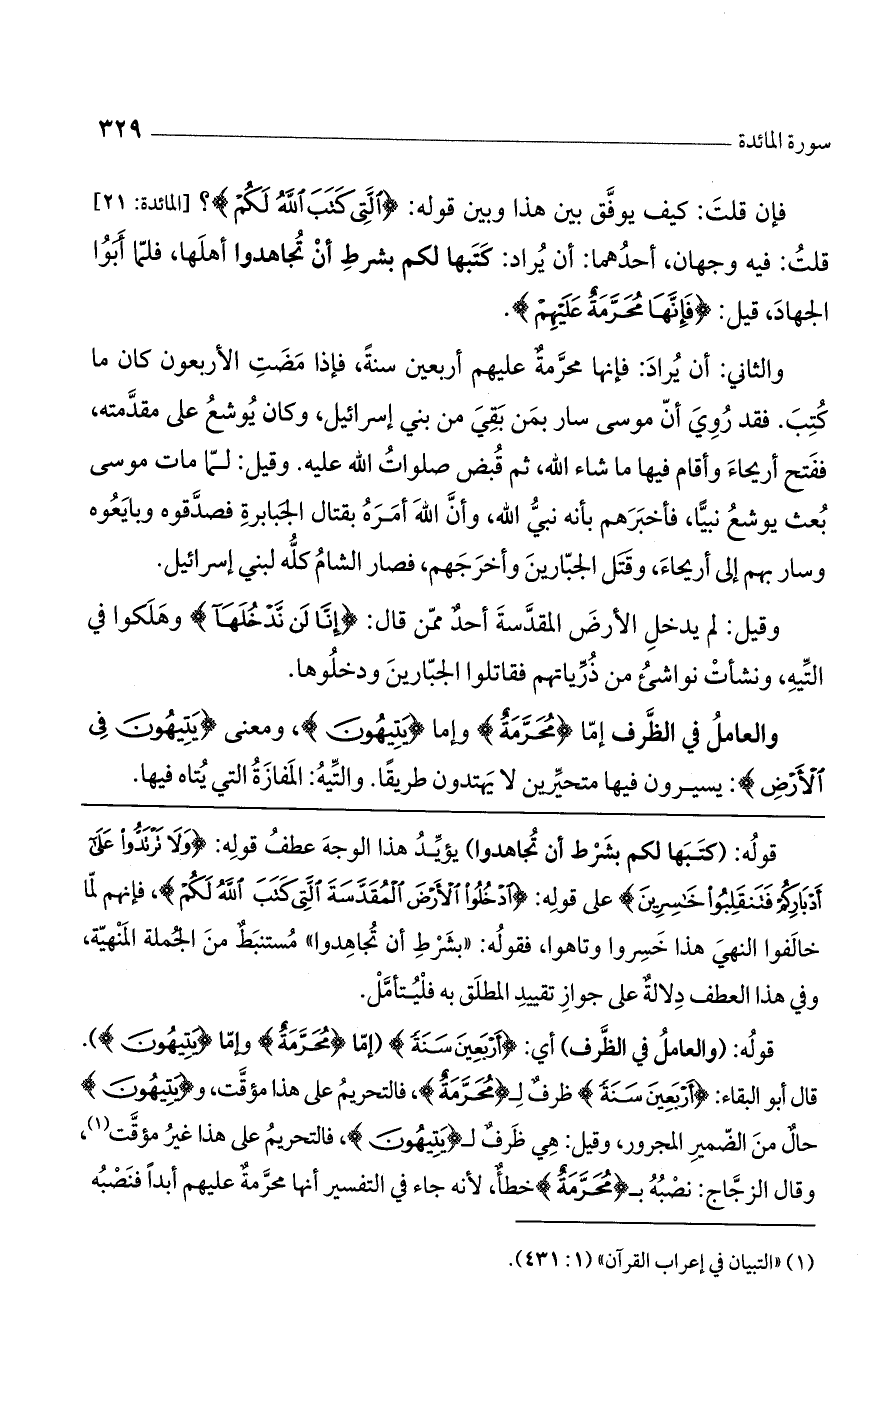 سورة المائدة ٣٢٩
فإن قلتَ: كيف يوفَّق بين هذا وبين قوله: ﴿ٱلَّتِى كَتَبَ ٱللَّهُ لَكُمْ﴾؟ [المائدة: ٢١]
قلتُ: فيه وجهان، أحدُهما: أن يُراد: كَتَبها لكم بشرطِ أنْ تُجاهدوا أهلَها، فلمّا أَبَوُا
الجهادَ، قيل: ﴿فَإِنَّهَا مُحَرَّمَةٌ عَلَيْهِمْ﴾.
والثاني: أن يُرادَ: فإنها محرَّمةٌ عليهم أربعين سنةً، فإذا مَضَتِ الأربعون كان ما
كُتِبَ. فقد رُوِيَ أنّ موسى سار بمَن بَقِيَ من بني إسرائيل، وكان يُوشعُ على مقدَّمته،
ففَتح أريحاءَ وأقام فيها ما شاء الله، ثم قُبض صلواتُ الله عليه. وقيل: لـمّا مات موسى
بُعث يوشعُ نبيًّا، فأخبَرَهم بأنه نبيُّ الله، وأنَّ اللهَ أمَرَهُ بقتال الجَبابرةِ فصدَّقوه وبايَعُوه
وسار بهم إلى أريحاءَ، وقَتَل الجبّارينَ وأخرَجَهم، فصار الشامُ كلُّه لبني إسرائيل.
وقيل: لم يدخلِ الأرضَ المقدَّسةَ أحدٌ ممّن قال: ﴿إِنَّا لَن نَّدْخُلَهَآ﴾ وهَلَكوا في
التِّيهِ، ونشأتْ نواشئُ من ذُرِّياتهم فقاتلوا الجبّارينَ ودخلُوها.
والعاملُ في الظَّرف إمّا ﴿مُحَرَّمَةٌ﴾ وإما ﴿يَتِيهُونَ﴾، ومعنى ﴿يَتِيهُونَ فِى
ٱلْأَرْضِ﴾: يسيرون فيها متحيِّرين لا يَهتدون طريقًا. والتِّيهُ: المَفازَةُ التي يُتاه فيها.
قولُه: (كتَبَها لكم بشَرْط أن تُجاهدوا) يؤيِّدُ هذا الوجهَ عطفُ قولِه: ﴿وَلَا تَرْتَدُّوا۟ عَلَىٰٓ
أَدْبَارِكُمْ فَتَنقَلِبُوا۟ خَٰسِرِينَ﴾ على قولِه: ﴿ٱدْخُلُوا۟ ٱلْأَرْضَ ٱلْمُقَدَّسَةَ ٱلَّتِى كَتَبَ ٱللَّهُ لَكُمْ﴾، فإنهم لمّا
خالَفوا النهيَ هذا خَسِروا وتاهوا، فقولُه: «بشَرْطِ أن تُجاهِدوا» مُستنبَطٌ منَ الجُملة المَنْهيّة،
وفي هذا العطف دِلالةٌ على جوازِ تقييدِ المطلَق به فلْيُتأمَّلْ.
قولُه: (والعاملُ في الظَّرف) أي: ﴿أَرْبَعِينَ سَنَةً﴾ (إمّا ﴿مُحَرَّمَةٌ﴾ وإمّا ﴿يَتِيهُونَ﴾).
قال أبو البقاء: ﴿أَرْبَعِينَ سَنَةً﴾ ظرفٌ لِـ﴿مُحَرَّمَةٌ﴾، فالتحريمُ على هذا مؤقَّت، و﴿يَتِيهُونَ﴾
حالٌ منَ الضّمير المجرور، وقيل: هِي ظَرفٌ لـ﴿يَتِيهُونَ﴾، فالتحريمُ على هذا غيرُ مؤقَّت(١)،
وقال الزجَّاج: نصْبُهُ بـ﴿مُحَرَّمَةٌ﴾ خطأٌ، لأنه جاء في التفسير أنها محرَّمةٌ عليهم أبداً فنَصْبُه
(١) «التبيان في إعراب القرآن» (١: ٤٣١).